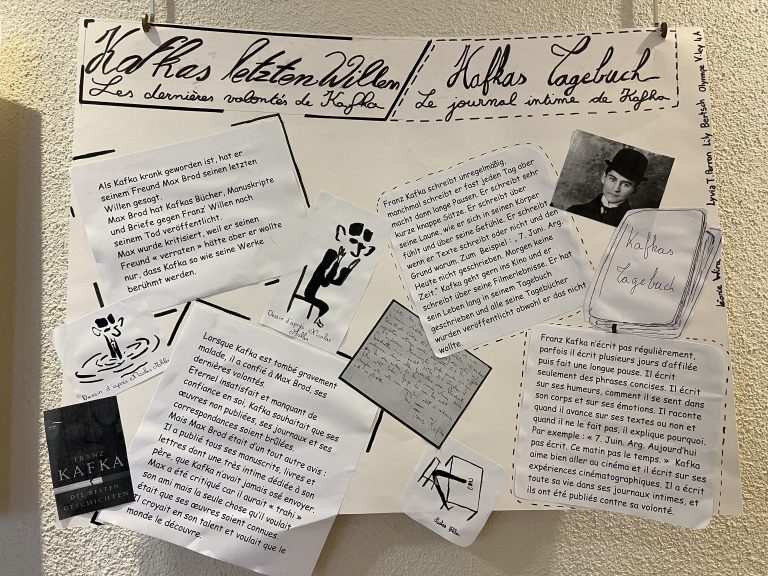 Kafkas letzten Willen
Les dernières volontés de Kafka
Kafkas Tagebuch
Le journal intime de Kafka
Als Kafka krank geworden ist, hat er
seinem Freund Max Brod seinen letzten
Willen gesagt.
Max Brod hat Kafkas Bücher, Manuskripte
und Briefe gegen Franz' Willen nach
seinem Tod veröffentlicht.
Max wurde kritisiert, weil er seinen
Freund « verraten » hätte aber er wollte
nur, dass Kafka so wie seine Werke
berühmt werden.
Franz Kafka schreibt unregelmäßig,
manchmal schreibt er fast jeden Tag aber
macht dann lange Pausen. Er schreibt sehr
kurze knappe Sätze. Er schreibt über
seine Laune, wie er sich in seinen Körper
fühlt und über seine Gefühle. Er schreibt
wenn er Texte schreibt oder nicht und den
Grund warum. Zum Beispiel : „ 7. Juni. Arg.
Heute nicht geschrieben. Morgen keine
Zeit." Kafka geht gern ins Kino und er
schreibt über seine Filmerlebnisse. Er hat
sein Leben lang in seinem Tagebuch
geschrieben und alle seine Tagebücher
wurden veröffentlicht obwohl er das nicht
wollte.
Kafkas
Tagebuch
Lorsque Kafka est tombé gravement
malade, il a confié à Max Brod, ses
dernières volontés.
Eternel insatisfait et manquant de
confiance en soi, Kafka souhaitait que ses
œuvres non publiées, ses journaux et ses
correspondances soient brûlées.
Mais Max Brod était d'un tout autre avis :
Il a publié tous ses manuscrits, livres et
lettres dont une très intime dédiée à son
père, que Kafka n'avait jamais osé envoyer.
Max a été critiqué car il aurait « trahi »
son ami mais la seule chose qu'il voulait
était que ses œuvres soient connues.
Il croyait en son talent et voulait que le
monde le découvre.
Franz Kafka n'écrit pas régulièrement,
parfois il écrit plusieurs jours d'affilée
puis fait une longue pause. Il écrit
seulement des phrases concises. Il écrit
sur ses humeurs, comment il se sent dans
son corps et sur ses émotions. Il raconte
quand il avance sur ses textes ou non et
quand il ne le fait pas, il explique pourquoi.
Par exemple : « 7. Juin. Arg. Aujourd'hui
pas écrit. Ce matin pas le temps. » Kafka
aime bien aller au cinéma et il écrit sur ses
expériences cinématographiques. Il a écrit
toute sa vie dans ses journaux intimes, et
ils ont été publiés contre sa volonté.
Dessin d'après Nicolas
Dessin d'après Nicolas
FRANZ
KAFKA
DIE BESTEN
GESCHICHTEN